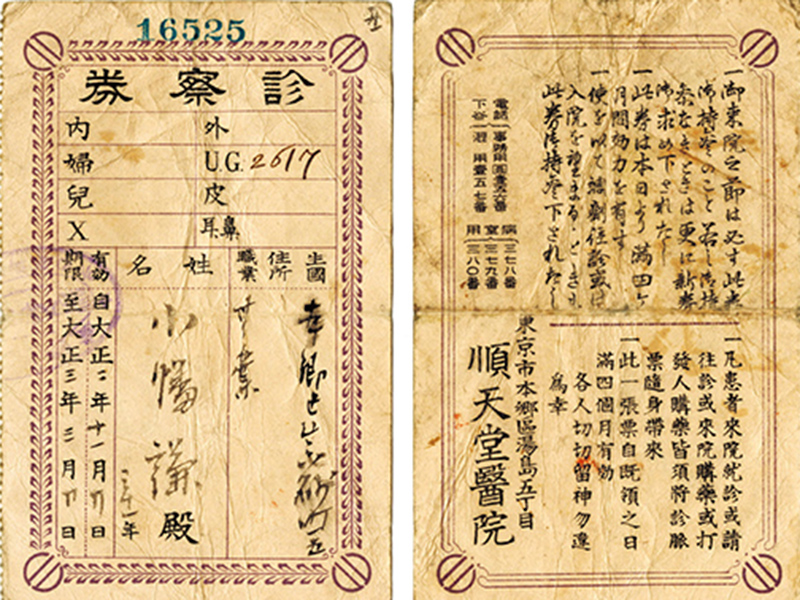 16525
診察券
外 内
U.G. 2617 婦
皮 兒
耳鼻 X
生國
住所
職業
姓名
小幡謙殿
有効期限
自大正二年十一月廿日
至大正三年三月廿日
一御來院之節は必す此券
御持參のこと若し御持
參なきときは更に新券
御求め下されたし
一此券は本日より滿四ヶ
月間効力を有す
一使を以て往診或は
入院を望まるゝときも
此券御持參下されたし
電話下谷
病室用 三七八番 三七九番 三八〇番
一凡患者來院就診或請
往診或來院購藥或打
發人購藥皆須將診脈
票隨身帶來
一此一張票自既領之日
滿四個月有効
各人切切留神勿違
爲幸
東京市本郷區湯島五丁目
順天堂醫院